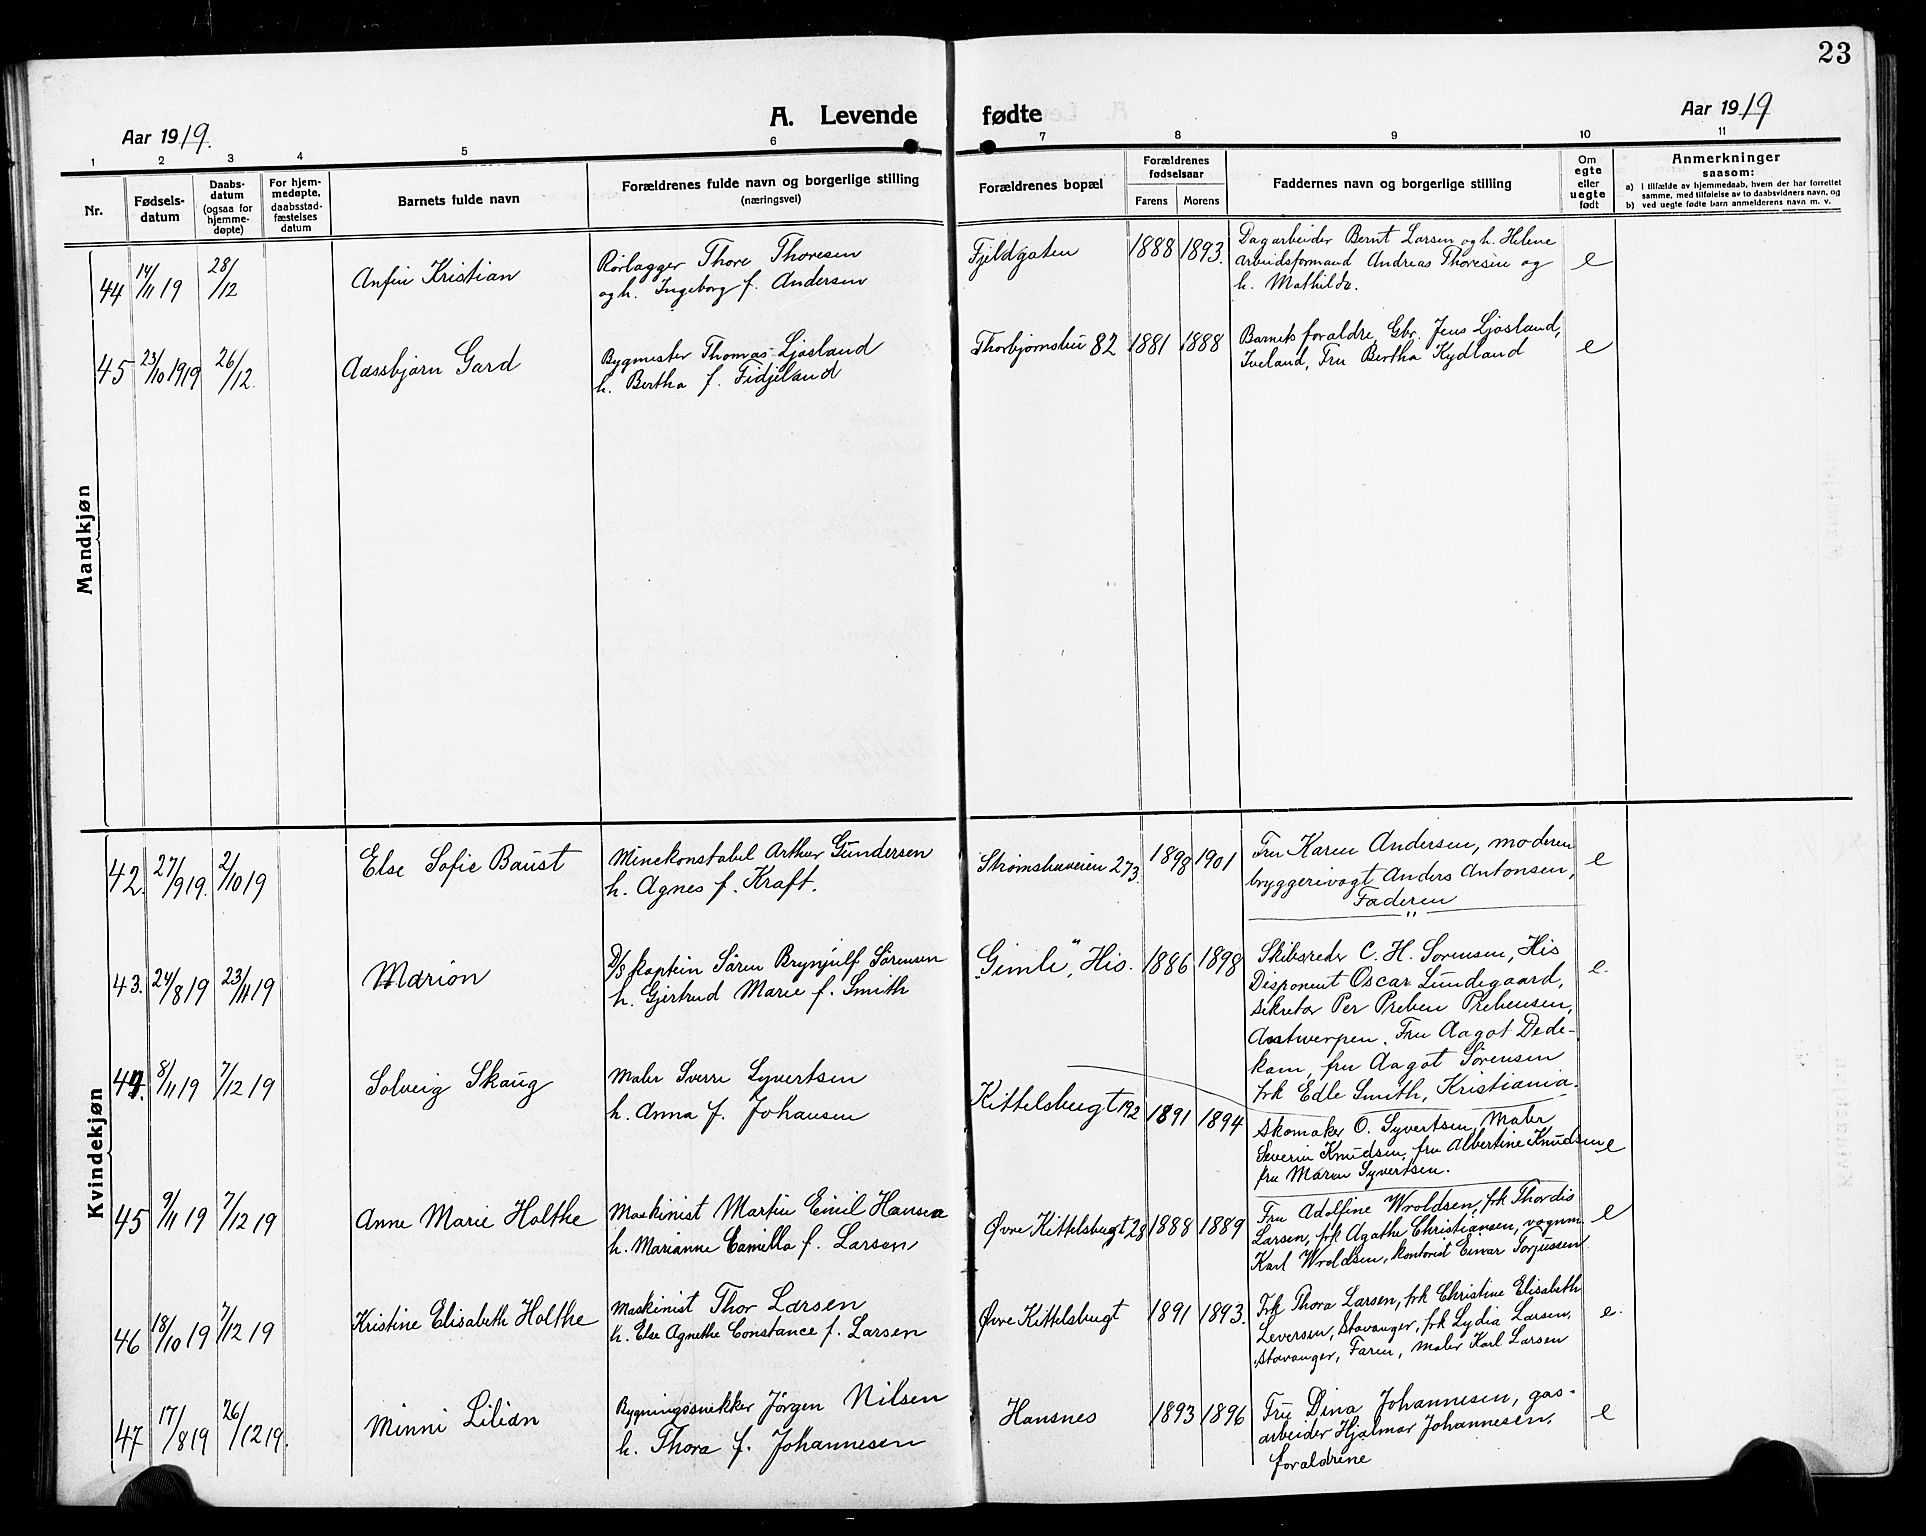 23
A. Levende fødte
Aar 1919.
Aar 1919
1 2 3 4 5 6 7 8 9 10 11
Nr.
Fødsels-
datum
Daabs-
datum
(ogsaa for
hjemme-
døpte)
For hjem-
medøpte,
daabsstad-
fæstelses
datum
Barnets fulde navn
Forældrenes fulde navn og borgerlige stilling
(næringsvei)
Forældrenes bopæl
Forældrenes
fødselsaar
Farens Morens
Faddernes navn og borgerlige stilling
Om
egte
eller
uegte
født
Anmerkninger
saasom:
a) I tilfælde av hjemmedaab, hvem der har forrettet
samme, med tilføielse av to daabsvidners navn, og
b) ved uegte fødte barn anmelderens navn m. v.
Mandkjøn
44 14/11 19 28/12 Anfin Kristian
Rørlægger Thore Thoresen
og h. Ingeborg f. Andersen
Fjeldgaten 1888 1893.
Dagarbeider Bernt Larsen og h. Helene
arbeidsformand Andreas Thoresen og
h. Mathilde.
e
45 23/10 1919 26/12. Aassbjørn Gard
Bygmester Thomas Ljosland
h. Bertha f. Fidjeland
Thorbjørnsbu 82 1881 1888
Barnets foraldre, Gbr. Jens Ljosland,
Iveland, Fru Bertha Kydland
e
Kvindekjøn
42. 27/9 19. 2/10 19 Else Sofie Baust
Minekonstabel Arthur Gundersen
h. Agnes f. Kraft.
Strømsbuveien 273. 1898 1901
Fru Karen Andersen, moderen
bryggerivogt Anders Antonsen,
Faderen
"
e
43. 24/8 19 23/11 19 Marion
D/S kaptein Sören Brynjulf Sörensen
h. Gjertrud Marie f. Smith
"Gimle", His. 1886 1898
Skibsreder C. H. Sorensen, His
Disponent Oscar Lundegaard,
sekretær Per Preben Prebensen,
Antwerpen. Fru Aagot Dede-
kam, fru Aagot Sörensen
frk Edle Smith, Kristiania.
e.
44. 8/11 19 7/12 19 Solveig Skaug
Maler Sverre Syvertsen
h. Anna f. Johansen
Kittelsbugt 192 1891 1894
Skomaker O. Syvertsen, Maler
Severin Knudsen, fru Albertine Knudsen
fru Maren Syvertsen.
e
45 9/11 19 7/12 19 Anne Marie Holthe
Maskinist Martin Emil Hansen
h. Marianne Camilla f. Larsen
Øvre Kittelsbugt 28 1888 1889
Fru Adolfine Wroldsen, frk Thordis
Larsen, frk Agathe Christiansen, vognm.
Karl Wroldsen, kontorist Einar Torjussen
e
46 18/10 19 7/12 19 Kristine Elisabeth Holthe
Maskinist Thor Larsen
h. Else Agnethe Constance f. Larsen
Øvre Kittelsbugt 1891 1893.
Frk Thora Larsen, frk Christine Elisabeth
Leversen, Stavanger, frk Lydia Larsen,
Stavanger, Faren, maler Karl Larsen
e.
47 17/8 19 26/12 19. Minni Lilian
Bygningssnekker Jörgen Nilsen
h. Thora f. Johannesen
Hansnes 1893 1896
Fru Dina Johannesen, gas-
arbeider Hjalmar Johannesen,
foraldrene
e